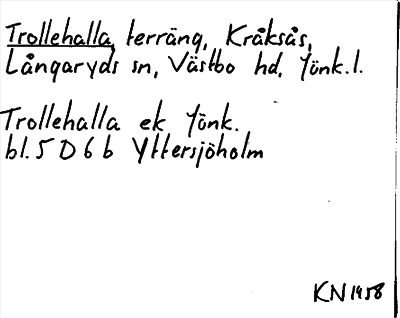 Trollehalla, terräng, Kråksås,
Långaryds sn, Västbo hd, Jönk.l.
Trollehalla ek Jönk.
bl. 5 D 6 b Yttersjöholm
KN 1958